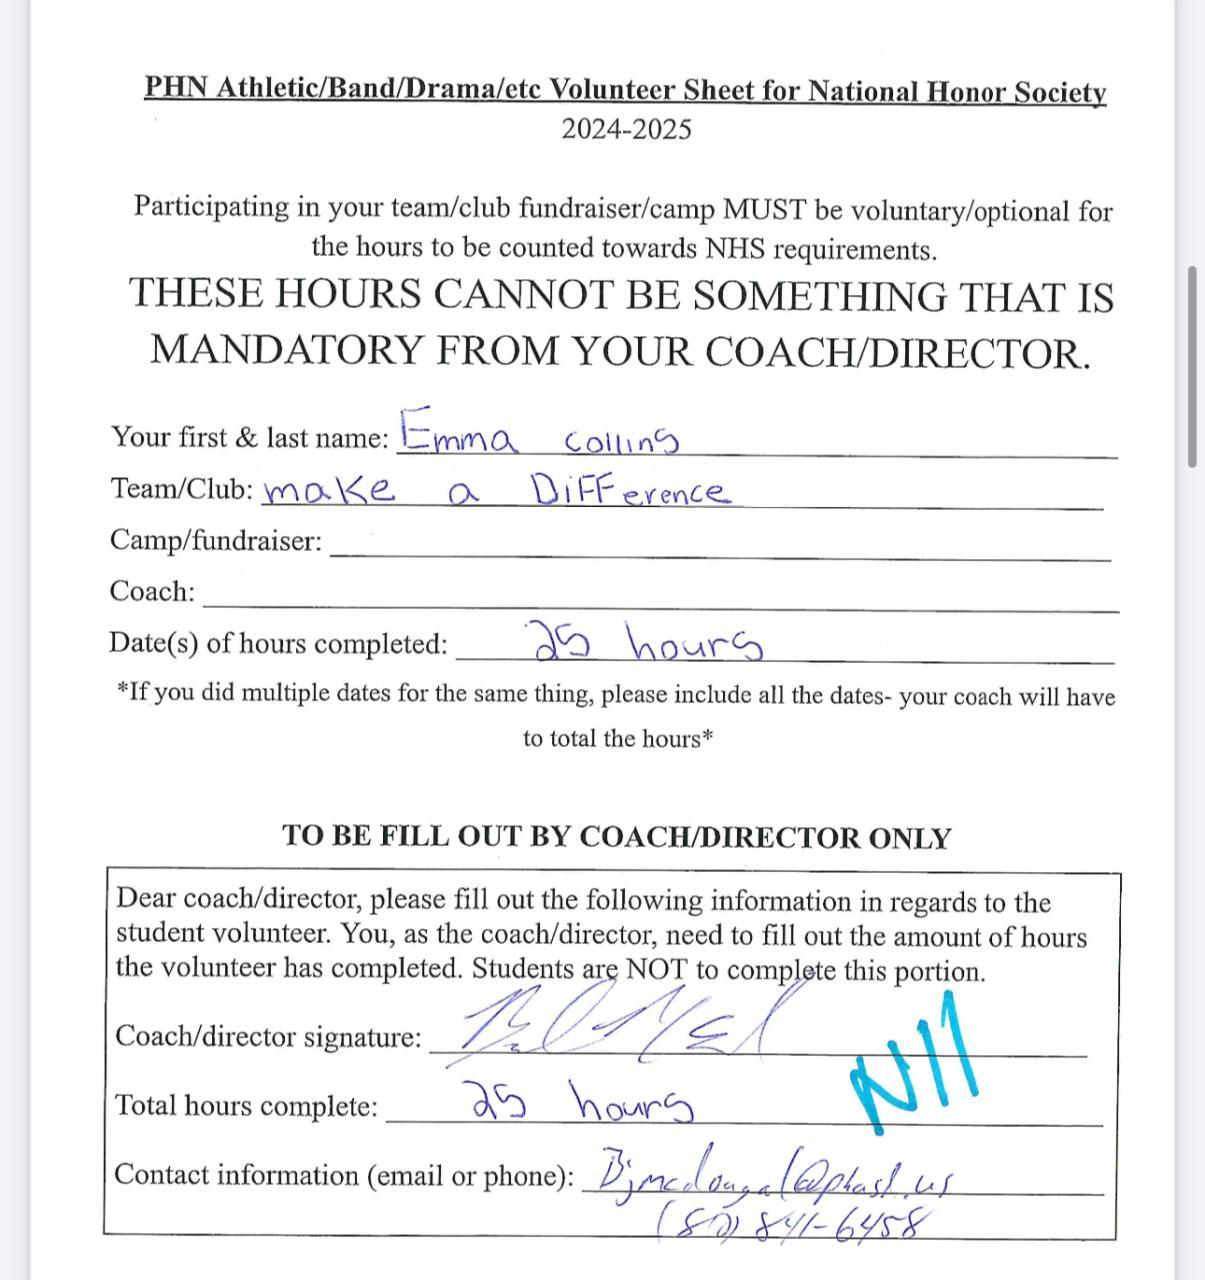 PHN Athletic/Band/Drama/etc Volunteer Sheet for National Honor Society
2024-2025
Participating in your team/club fundraiser/camp MUST be voluntary/optional for
the hours to be counted towards NHS requirements.
THESE HOURS CANNOT BE SOMETHING THAT IS
MANDATORY FROM YOUR COACH/DIRECTOR.
Your first & last name: Emma Collins
Team/Club: make a DiFFerence
Camp/fundraiser:
Coach:
Date(s) of hours completed: 25 hours
*If you did multiple dates for the same thing, please include all the dates- your coach will have
to total the hours*
TO BE FILL OUT BY COACH/DIRECTOR ONLY
Dear coach/director, please fill out the following information in regards to the
student volunteer. You, as the coach/director, need to fill out the amount of hours
the volunteer has completed. Students are NOT to complete this portion.
Coach/director signature:
Total hours complete: 25 hours
Contact information (email or phone):
841-6458